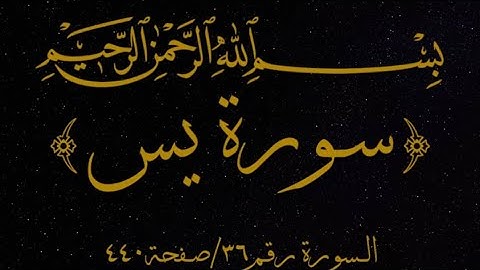 بِسْمِ ٱللَّهِ ٱلرَّحْمَٰنِ ٱلرَّحِيمِ
﴿ سورة يس ﴾
السورة رقم ٣٦/صفحة ٤٤٠